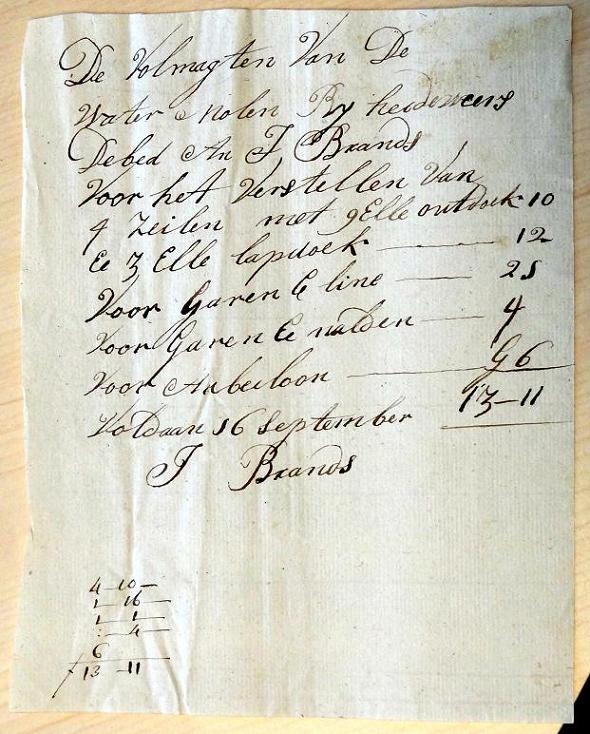 De Volmagten Van De
Water Molen By
Debed An J Brands
Voor het Verstellen Van
4 Zeilen met 9 Elle outdoek 10
Ee 3 Elle lapdoek 12
Voor Garen E line 21
Voor Garen Ee nalden 4
Voor Arbeiloon G 6
Voldaan 16 September 13-11
J Brands
4-10-
1 16
1 1
:-4
6
13-11